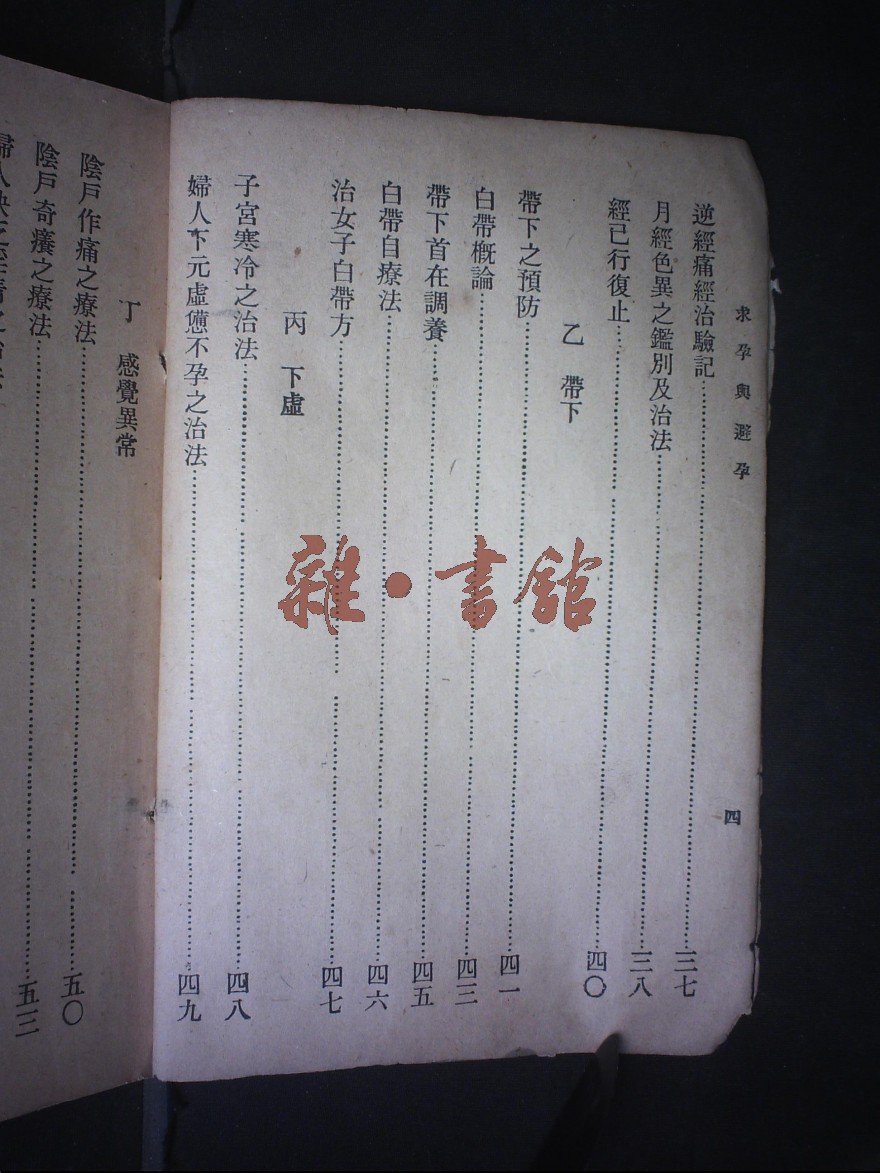 求孕與避孕
四
逆經痛經治驗記……三七
月經色異之鑑別及治法……三八
經已行復止……四〇
乙 帶下
帶下之預防……四一
白帶槪論……四三
帶下首在調養……四五
白帶自療法……四六
治女子白帶方……四七
丙 下虛
子宮寒冷之治法……四八
婦人下元虛憊不孕之治法……四九
丁 感覺異常
陰戶作痛之療法……五〇
陰戶奇癢之療法……五三
雜·書館